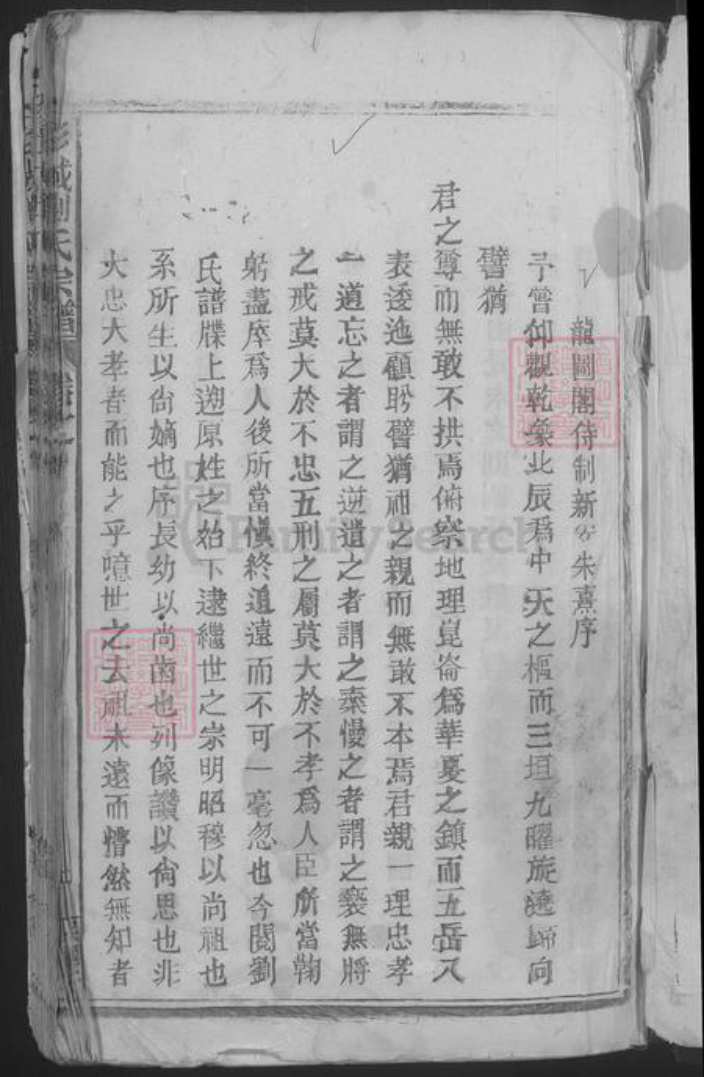 龍圖閣待制新安朱熹序
予曾仰觀乾象北辰爲中天之樞而三垣九曜旋遶歸向
譬猶
君之尊而無敢不拱焉俯察地理崑崙爲華夏之鎮而五岳八
表逶迤顧盻譬猶祖之親而無敢不本焉君親一理忠孝
一道忘之者謂之逆遺之者謂之棄慢之者謂之褻無將
之戒莫大於不忠五刑之屬莫大於不孝爲人臣所當鞠
躬盡瘁爲人後所當愼終追遠而不可一毫忽也今閱劉
氏譜牒上遡原姓之始下逮繼世之宗明昭穆以尚祖也
系所生以尚嫡也序長幼以尚齒也列像讚以尙思也非
大忠大孝者而能之乎噫世之去祖未遠而懵然無知者
彭城劉氏宗譜
FamilySearch